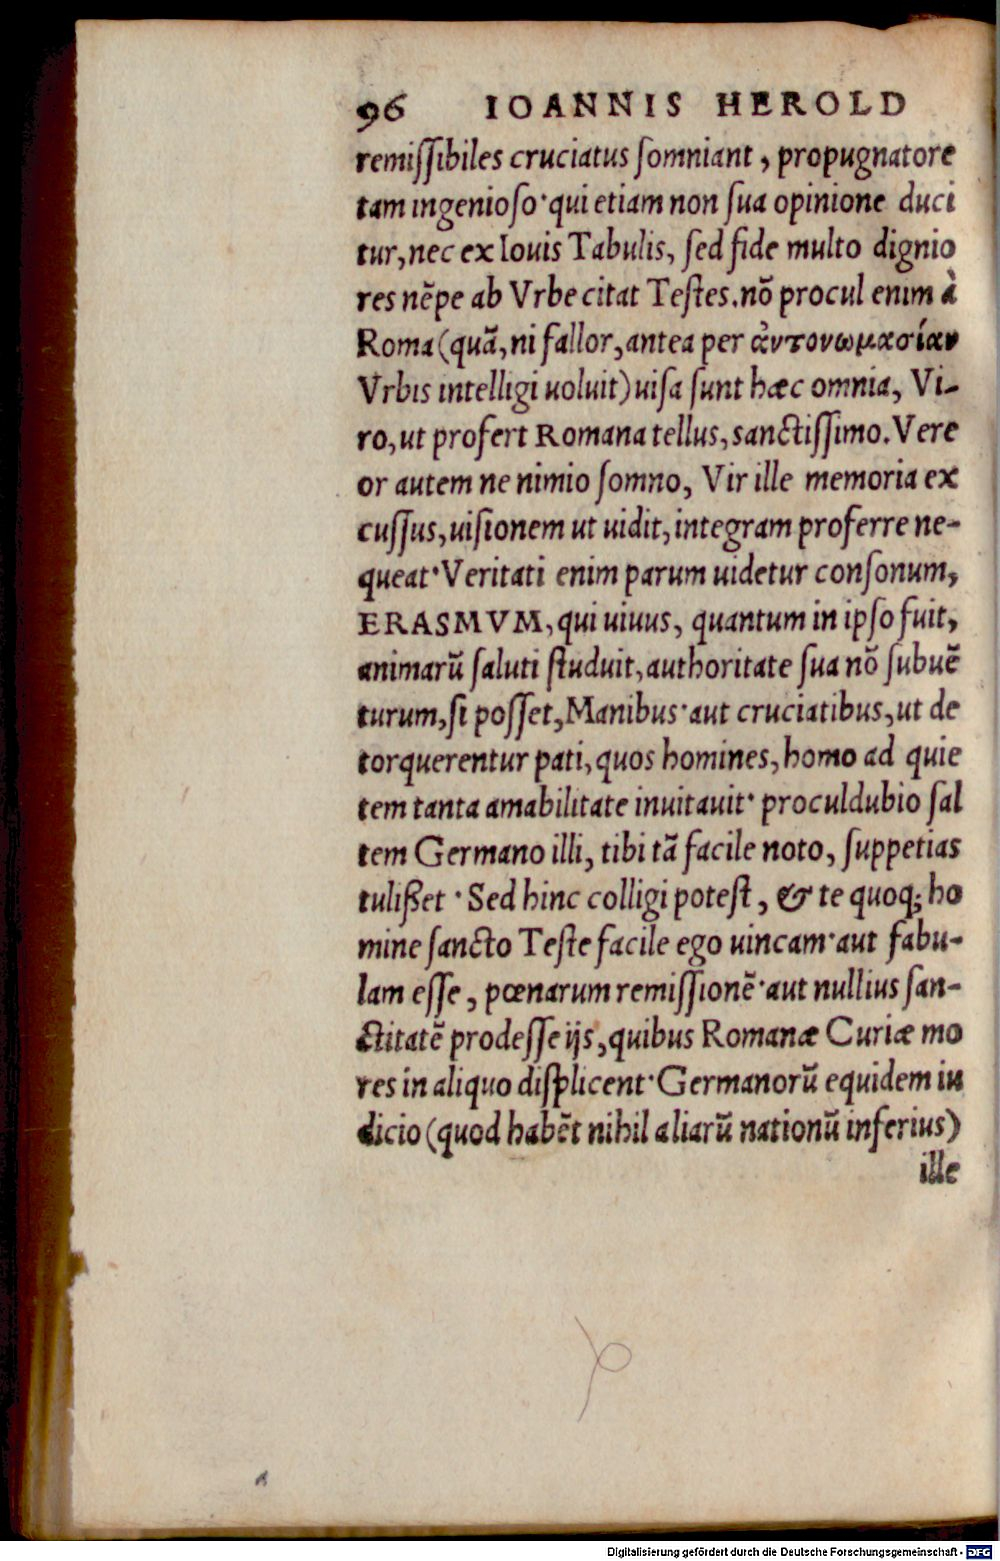 96 IOANNIS HEROLD
remiſſibiles cruciatus ſomniant, propugnatore
tam ingenioſo· qui etiam non ſua opinione duci
tur, nec ex Iouis Tabulis, ſed fide multo dignio
res nẽpe ab Vrbe citat Teſtes. nõ procul enim à
Roma (quã, ni fallor, antea per ἀντονωμασίαν
Vrbis intelligi uoluit) uiſa ſunt hæc omnia, Vi-
ro, ut profert Romana tellus, sanctiſſimo. Vere
or autem ne nimio ſomno, Vir ille memoria ex
cuſſus, uiſionem ut uidit, integram proferre ne-
queat· Veritati enim parum uidetur conſonum,
ERASMVM, qui uiuus, quantum in ipſo fuit,
animarũ ſaluti ſtuduit, authoritate ſua nõ ſubuẽ
turum, ſi poſſet, Manibus· aut cruciatibus, ut de
torquerentur pati, quos homines, homo ad quie
tem tanta amabilitate inuitauit· proculdubio ſal
tem Germano illi, tibi tã facile noto, ſuppetias
tulißet · Sed hinc colligi poteſt, & te quoq; ho
mine ſancto Teſte facile ego uincam· aut fabu-
lam eſſe, pœnarum remiſſionẽ· aut nullius ſan-
ctitatẽ prodeſſe ijs, quibus Romanæ Curiæ mo
res in aliquo diſplicent· Germanorũ equidem iu
dicio (quod habẽt nihil aliarũ nationũ inferius)
ille
Digitalisierung gefördert durch die Deutsche Forschungsgemeinschaft - DFG